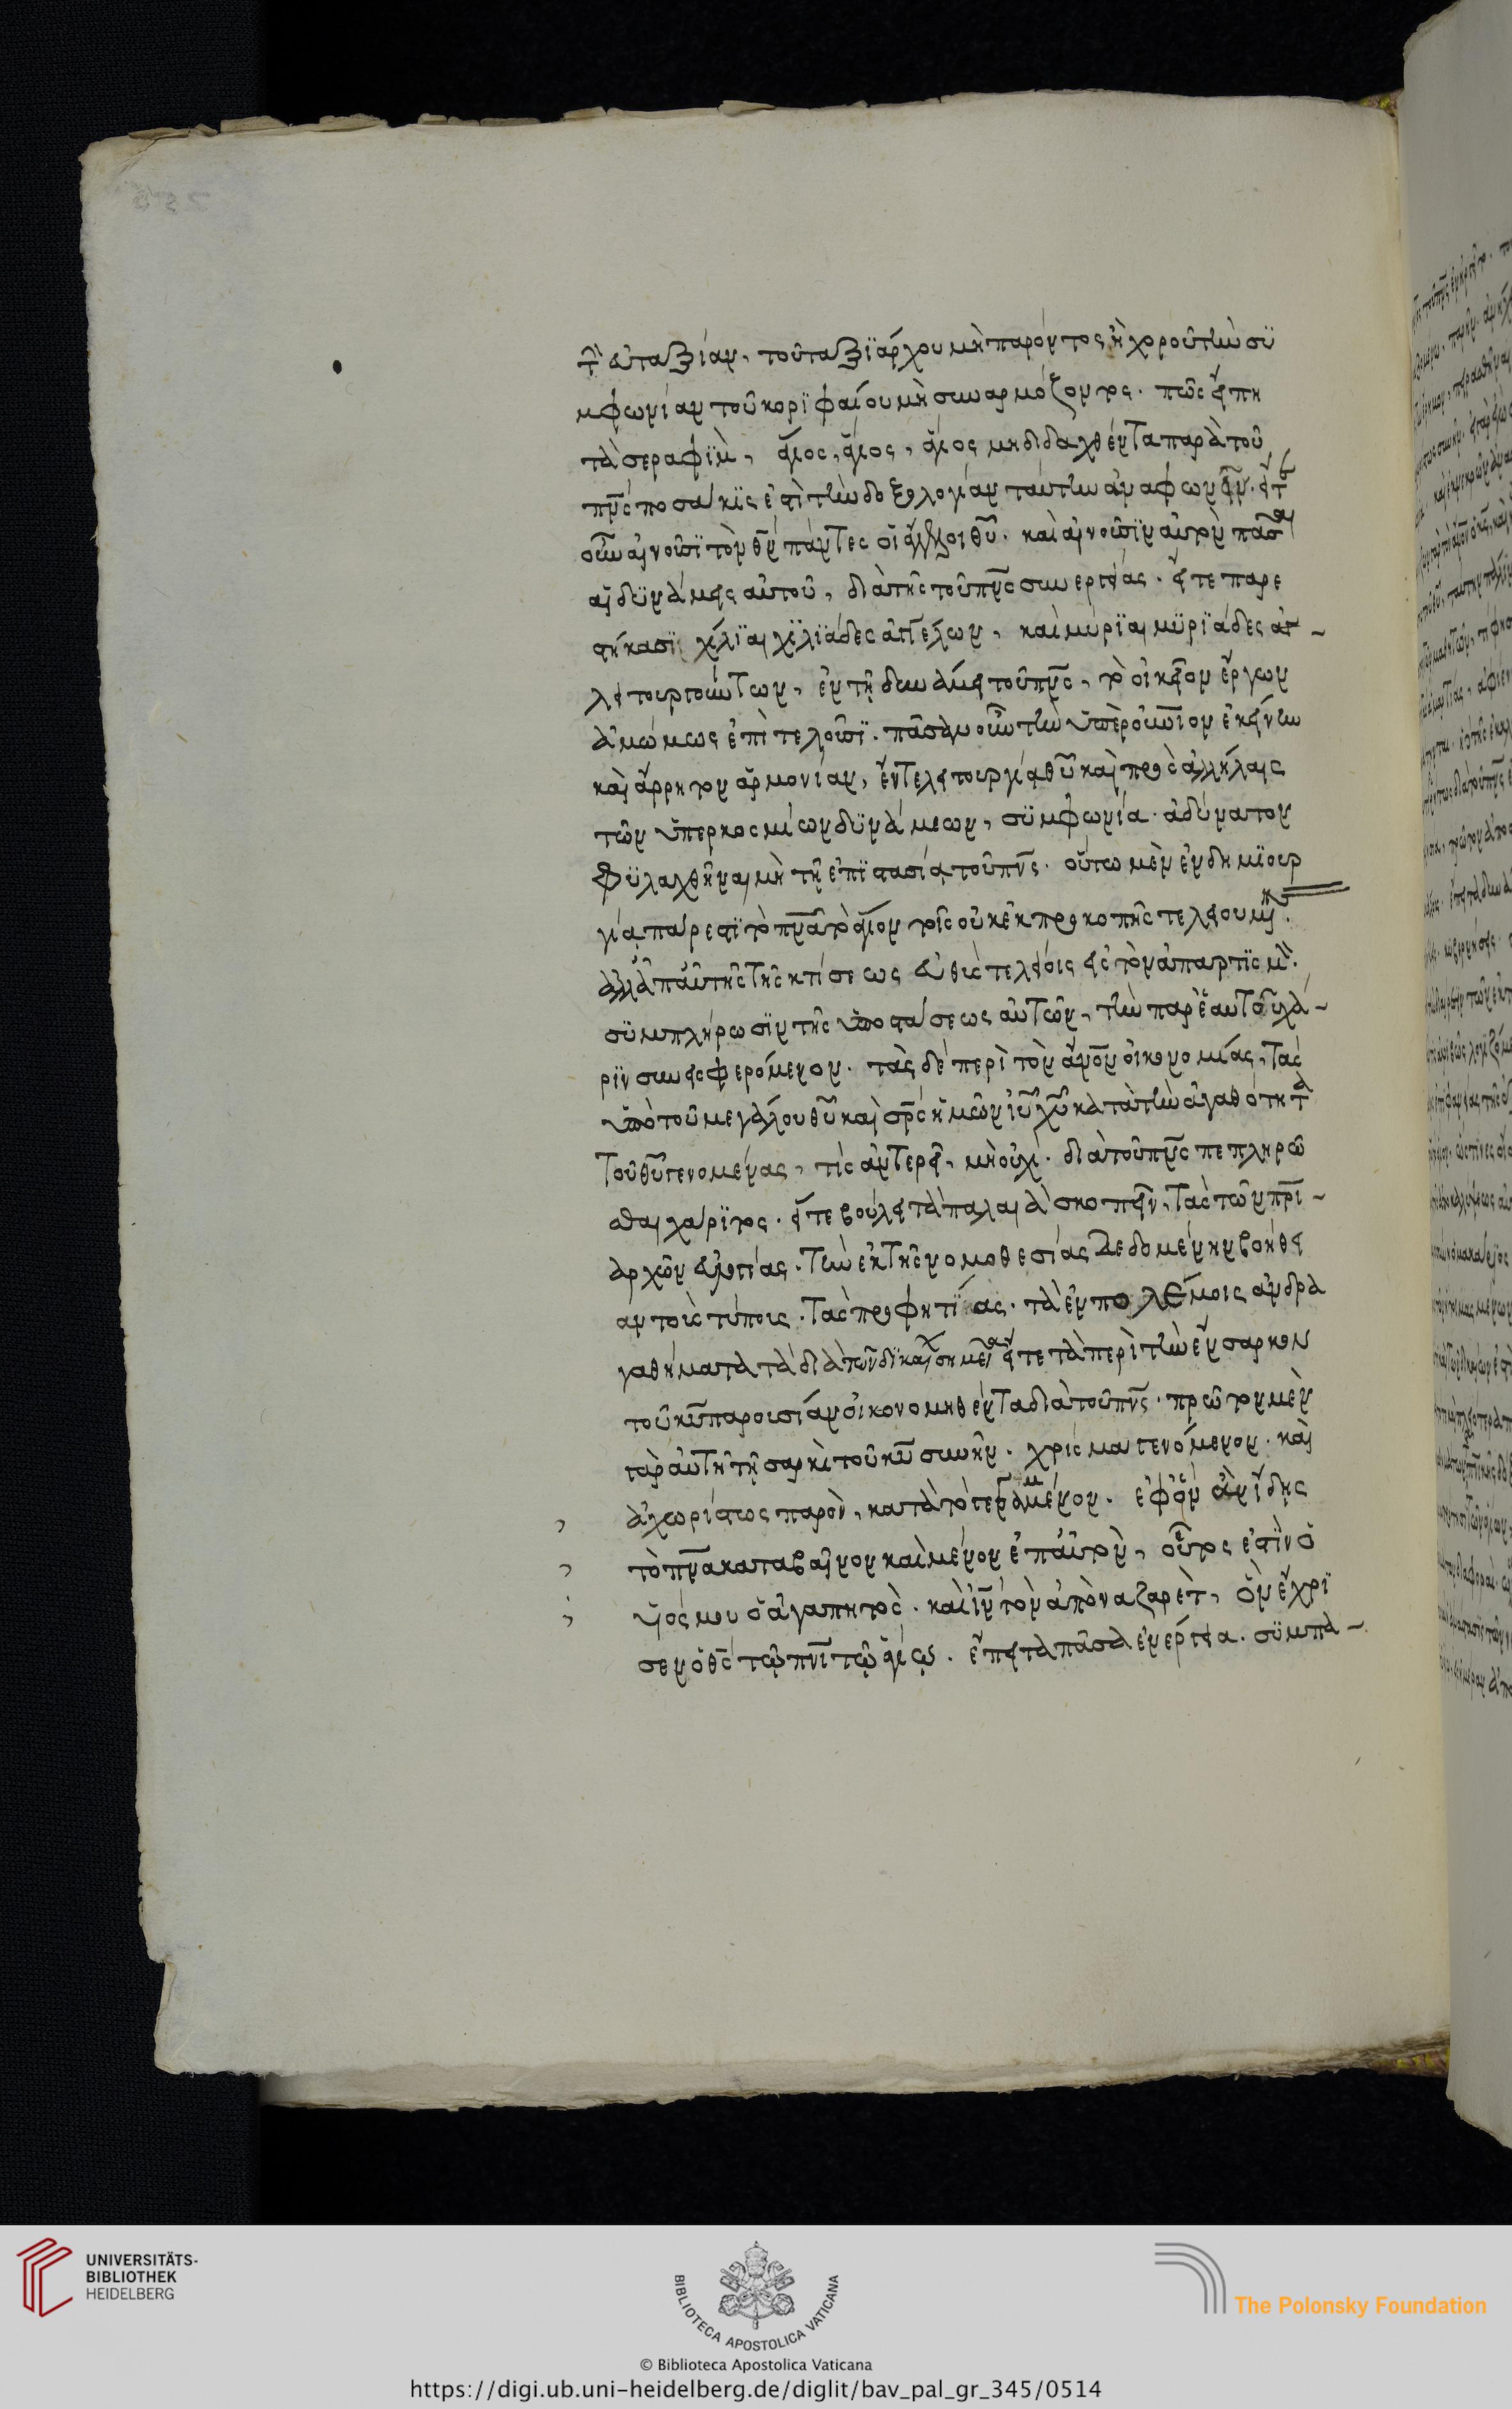 τ̀ εὐταξίαν, τοῦ ταξϊάρχου μὴ παρόντος ἢ χοροῦ τὴν σϋ
μφωνίαν τοῦ κορϊφαίου μὴ συναρμόζοντος. πῶς εἴπη
τὰ σεραφῒμ, ἅγιος, ἅγιος, ἅγιος μὴ διδαχθέντα παρὰ τοῦ
πν̅ς ποσάκϊς ἐστὶ τὴν δοξολογίαν ταύτην ἀναφωνεῖν. εἴτε
οὖν αἰνοῦσϊ τὸν θ̅ν πάντες οἱ ἄγγελοι θ̅υ. καὶ αἰνοῦσϊν αὐτὸν πᾶσαι
αἱ δϋνάμεις αὐτοῦ, διὰ τῆς τοῦ πν̅ς συνεργείας. εἴτε παρε
στήκασϊ χίλϊαι χϊλϊάδες ἀγγέλων, καὶ μύρϊαι μϋρϊάδες
λειτουργούντων, ἐν τῇ δυνάμει τοῦ πν̅ς, τὸ οἰκεῖον ἔργων
ἀμώμως ἐπὶ τελοῦσϊ. πᾶσαν οὖν τὴν ὑπερουράνιον ἐκείνην
καὶ ἄρρητον ἁρμονίαν, ἔντε λειτουργία θ̅υ καὶ πρὸς ἀλλήλαις
τῶν ὑπερκοσμίων δϋνάμεων, σϋμφωνία. ἀδύνατον
φϋλαχθῆναι μὴ τῇ ἐπϊστασία τοῦ πν̅ς. οὕτω μὲν ἐν δημϊουρ
γία πάρεστϊ τὸ πν̅α τὸ ἅγιον τοῖς οὐκ ἐκ προκοπῆς τελειουμ.
ἀλλ' ἀπ' αὐτῆς τῆς κτίσεως εὐθὺς τελείοις εἰς τὸν ἀπαρτϊσμ.
σϋμπλήρωσϊν τῆς ὑποστάσεως αὐτῶν, τὴν παρ' ἑαυτοῦ χά-
ρϊν συνεισφερόμενον. τὰς δὲ περὶ τὸν ἄν̅ον οἰκονομίας, τὰς
ὑπὸ τοῦ μεγάλου θ̅υ καὶ σ̅ρς ἡμῶν ἰ̅υ χ̅υ κατὰ τὴν ἀγαθότητα
τοῦ θ̅υ γενομένας, τίς ἀντερεῖ, μὴ οὐχί. διὰ τοῦ πν̅ς πεπληρῶ
σθαι χάρϊτος. εἴτε βούλει τὰ παλαιὰ σκοπεῖν, τὰς τῶν πρ̅ι-
αρχῶν εὐλογίας. τὴν ἐκ τῆς νομοθεσίας δεδομένην βοήθει
αν τοὺς τύπους. τὰς προφητϊίας. τὰ ἐν πολέμοις ἀνδρα
γαθήματα τὰ διὰ τῶν δϊκαίων σημεῖα εἴτε τὰ περὶ τὴν ἔνσαρκον
τοῦ κ̅υ παρουσίαν οἰκονομηθέντα διὰ τοῦ πν̅ς. πρῶτον μὲν
γὰρ αὐτῇ τῇ σαρκὶ τοῦ κ̅υ συνῆν. χρίσμα γενόμενον. καὶ
ἀχωρίστως παρὸν, κατὰ τὸ γεγραμμένον. ἐφ' ὃν ἂν ἴδῃς
τὸ πν̅α καταβαῖνον καὶ μένον ἐπ' αὐτὸν, οὗτος ἐστϊν ὁ
υἱός μου ὁ ἀγαπητὸς. καὶ ἰ̅ν τὸν ἀπὸ ναζαρὲτ, ὃν ἔχρϊ
σεν ὁ θ̅ς τῷ πν̅ι τῷ ἁγίῳ. ἔπειτα πᾶσα ἐνέργεια. σϋμπα-
UNIVERSITÄTS-
BIBLIOTHEK
HEIDELBERG
BIBLIOTECA APOSTOLICA VATICANA
© Biblioteca Apostolica Vaticana
The Polonsky Foundation
https://digi.ub.uni-heidelberg.de/diglit/bav_pal_gr_345/0514